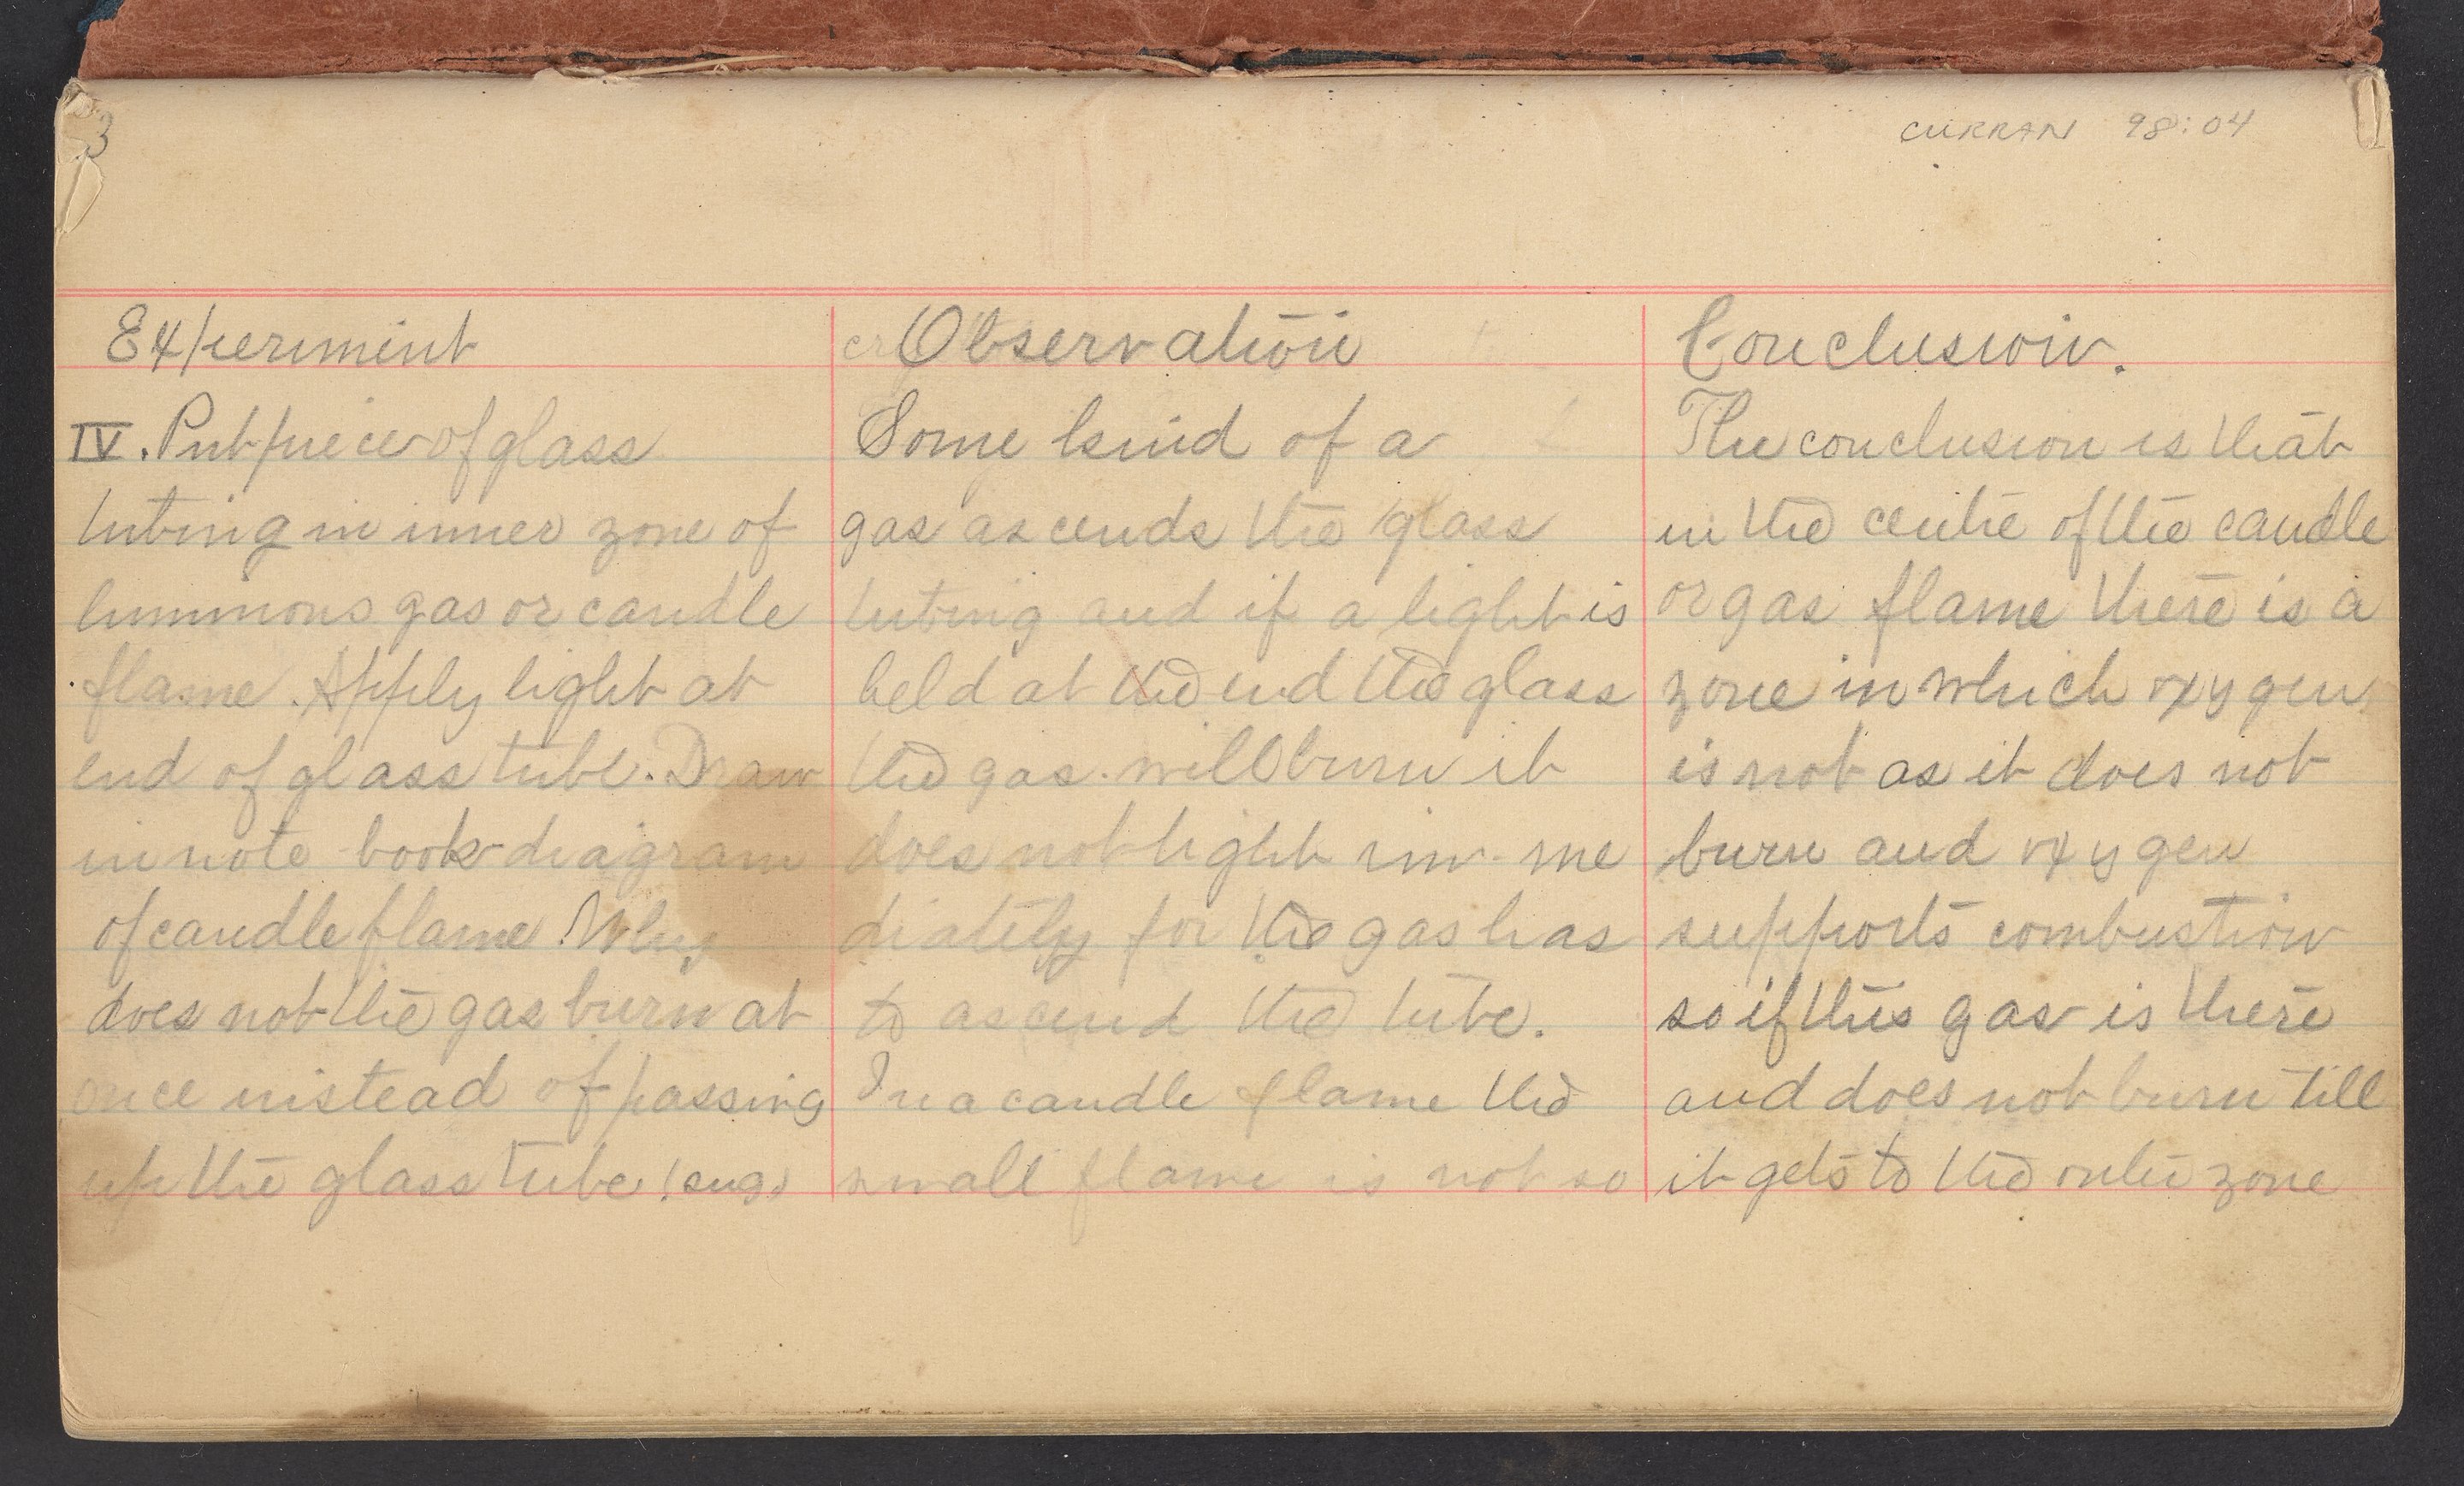 3
CURRAN 98:04
Experiment
IV. Put piece of glass
tubing in inner zone of
luminous gas or candle
flame. Apply light at
end of glass tube. Draw
in note book diagram
of candle flame. Why
does not the gas burn at
once instead of passing
up the glass tube (sug)
Observation
Some kind of a
gas ascends the glass
tubing and if a light is
held at the end the glass
the gas will burn it
does not light im me
diately for the gas has
to ascend the tube.
In a candle flame the
small flame is not so
Conclusion.
The conclusion is that
in the centre of the candle
or gas flame there is a
zone in which oxygen
is not as it does not
burn and oxygen
supports combustion
so if this gas is there
and does not burn till
it gets to the outer zone